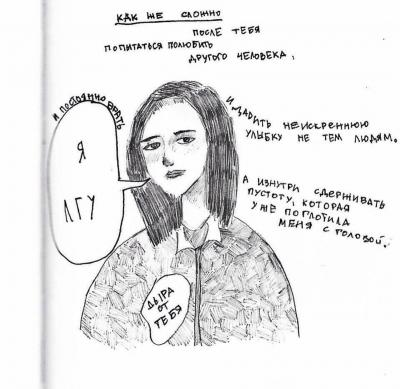 КАК ЖЕ СЛОЖНО
ПОСЛЕ ТЕБЯ
ПОПИТАТЬСЯ ПОЛЮБИТЬ
ДРУГОГО ЧЕЛОВЕКА,
И ПОСТОЯННО ВРАТЬ
Я
ЛГУ
И ДАВИТЬ НЕИСКРЕННЮЮ
УЛЫБКУ НЕ ТЕМ ЛЮДЯМ.
А ИЗНУТРИ СДЕРЖИВАТЬ
ПУСТОТУ, КОТОРАЯ
УЖЕ ПОГЛОТИЛА
МЕНЯ С ГОЛОВОЙ.
ДЫРА
ОТ
ТЕБЯ